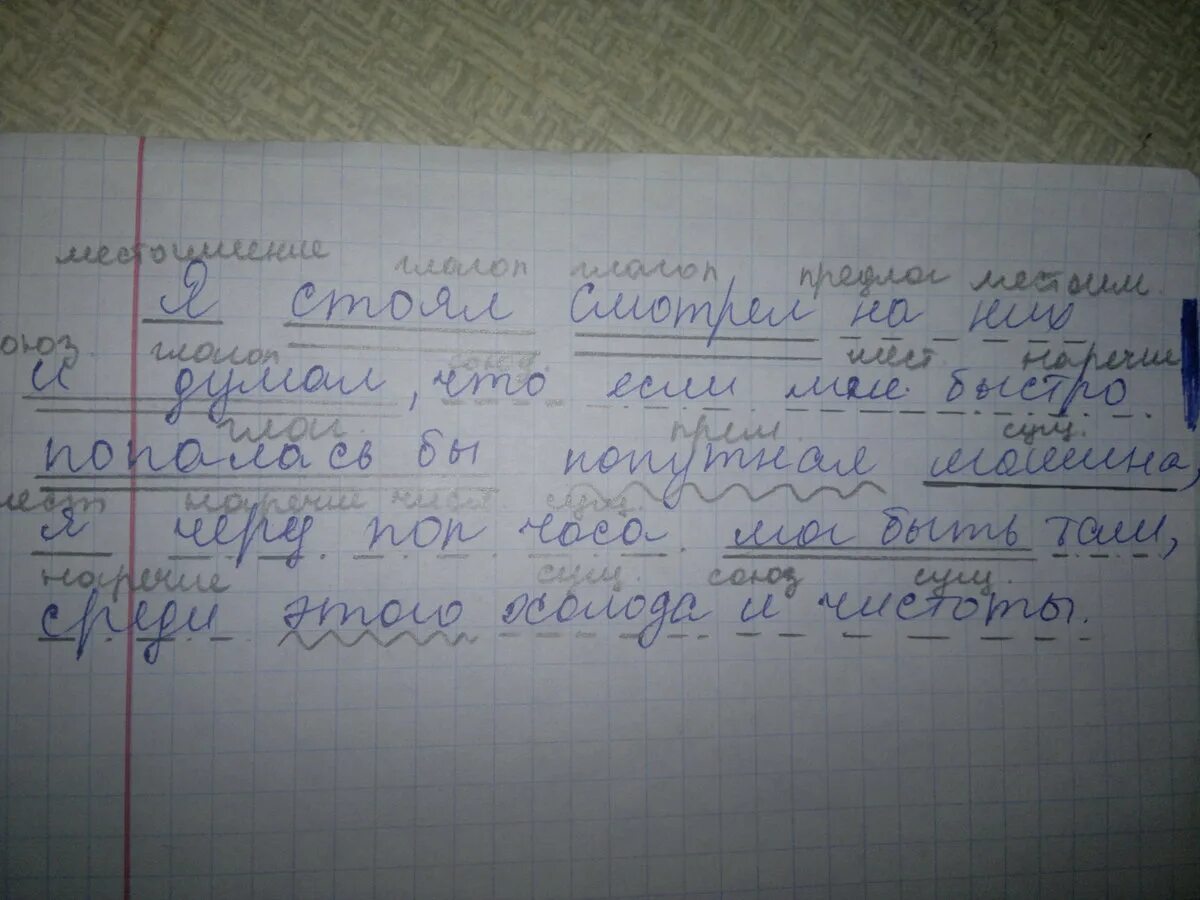 местоимение глагол глагол предлог местоим.
Я стоял смотрел на них
союз глагол союз. мест. наречие
и думал, что если мне быстро
глаг. прил. сущ.
попалась бы попутная машина,
мест наречие числ сущ.
я через пол часа мог быть там,
наречие сущ. союз сущ.
среди этого холода и чистоты.